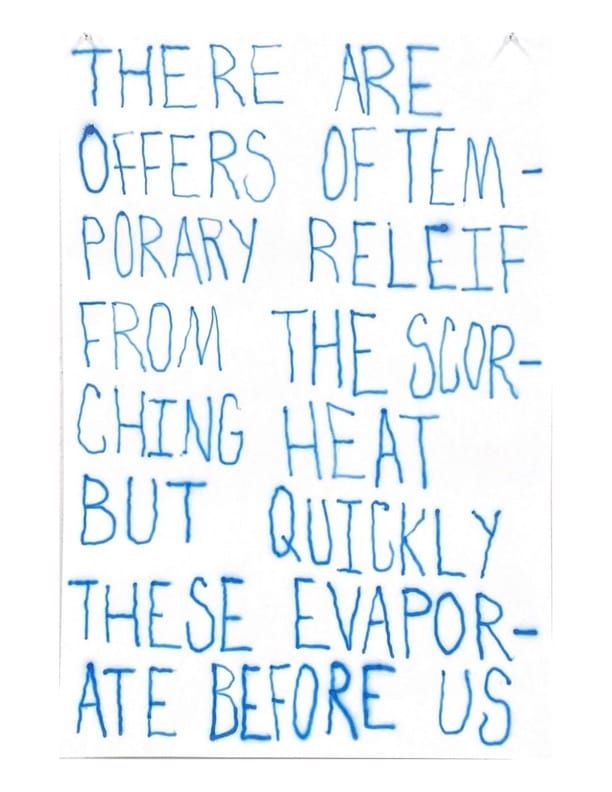 THERE ARE
OFFERS OF TEM-
PORARY RELEIF
FROM THE SCOR-
CHING HEAT
BUT QUICKLY
THESE EVAPOR-
ATE BEFORE US